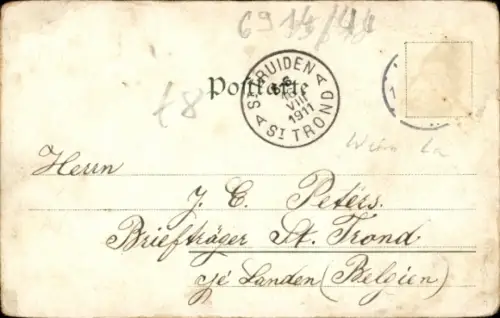 6914/44
Postkarte
ST TRUIDEN
VIII
1911
A ST TROND A
f8
Wien
Herrn
J. C. Peters.
Briefträger St. Trond
Landen (Belgien)